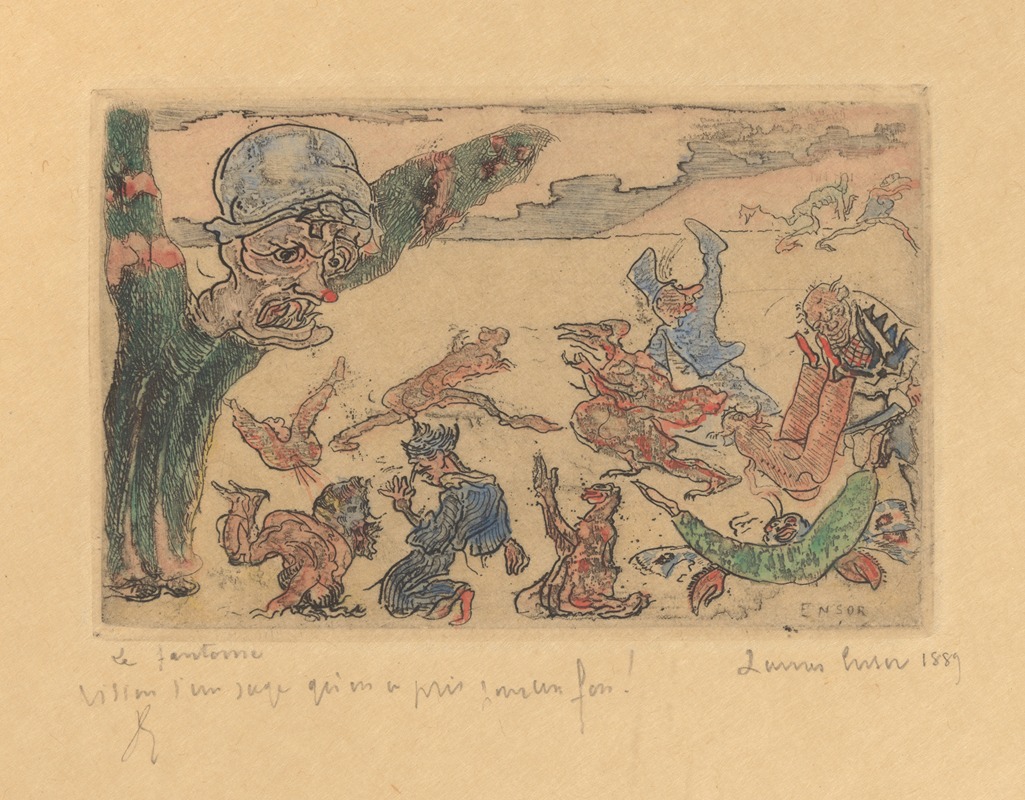 ENSOR
Le fantome James Ensor 1889
Vision d'un sage qu'on a pris pour un fou!